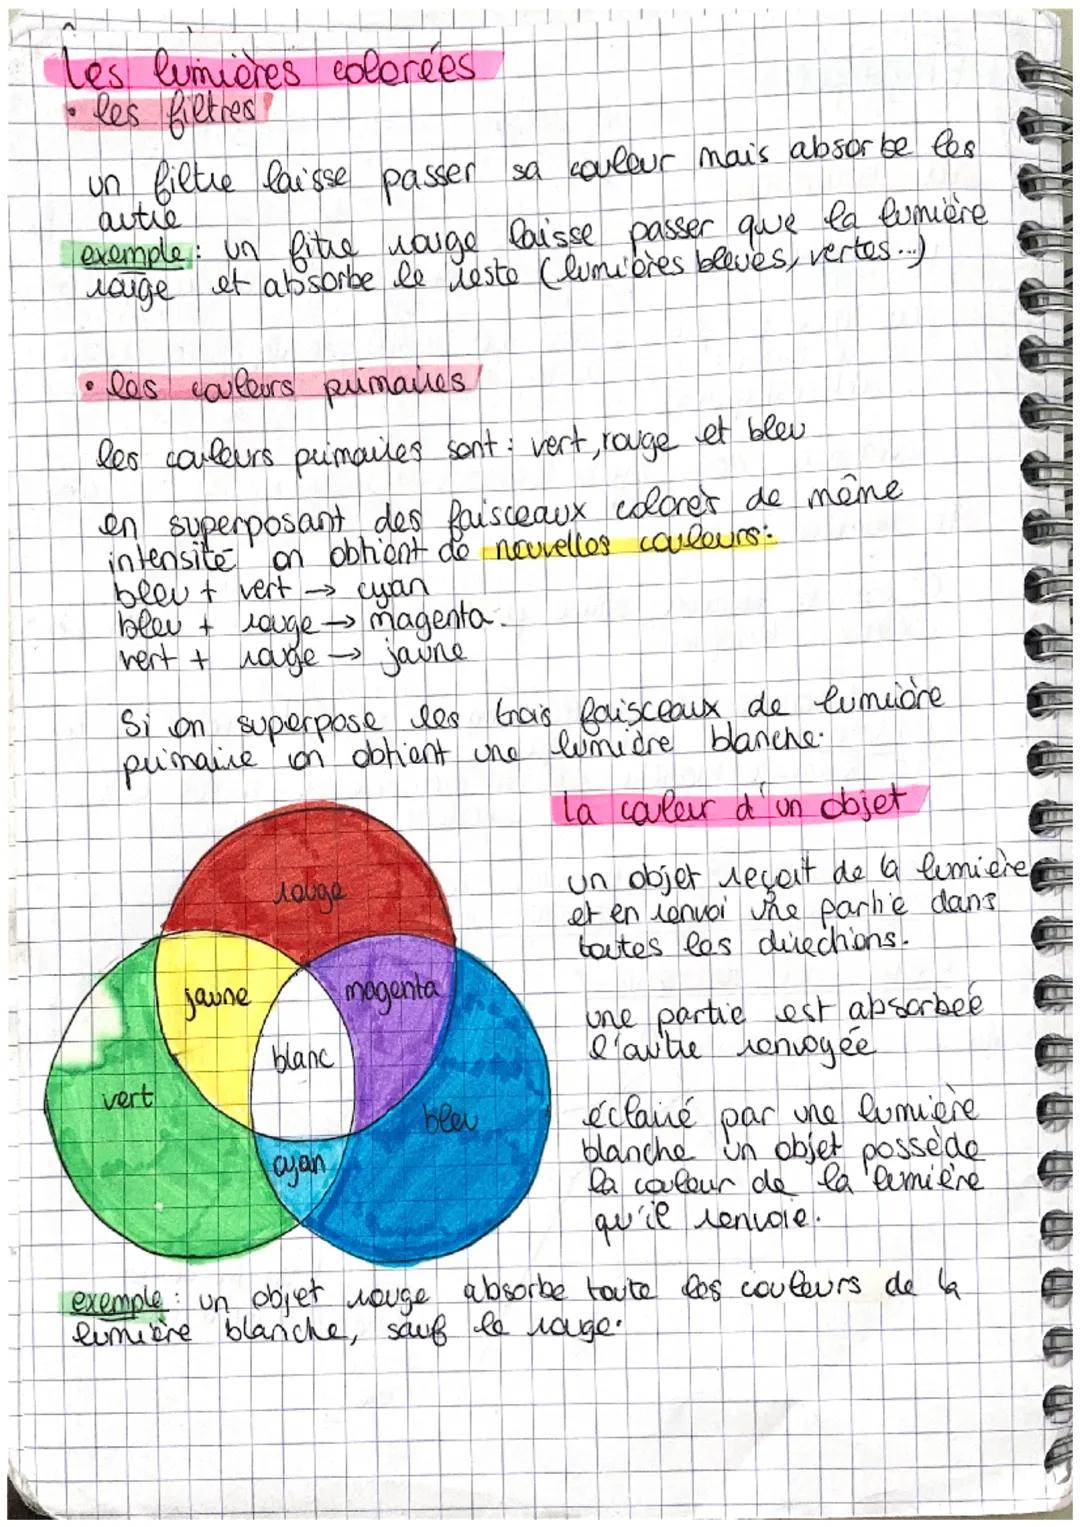 Les lumières colorées
• les filtres
un filtre laisse passer sa couleur mais absorbe les
autre
exemple : un fitre rouge laisse passer que la lumière
rouge et absorbe le reste (lumières bleues, vertes...)
• les couleurs primaires
les couleurs primaires sont : vert, rouge et bleu
en superposant des faisceaux colorés de même
intensité on obtient de nouvelles couleurs :
bleu + vert → cyan
bleu + rouge → magenta.
vert + rouge → jaune
Si on superpose les trois faisceaux de lumière
primaire on obtient une lumière blanche.
rouge
jaune
magenta
blanc
vert
bleu
cyan
la couleur d'un objet
un objet reçoit de la lumière
et en renvoi une partie dans
toutes les directions.
une partie est absorbée
l'autre renvoyée
éclairé par une lumière
blanche un objet possède
la couleur de la lumière
qu'il renvoie.
exemple : un objet rouge absorbe toute les couleurs de la
lumière blanche, sauf le rouge.